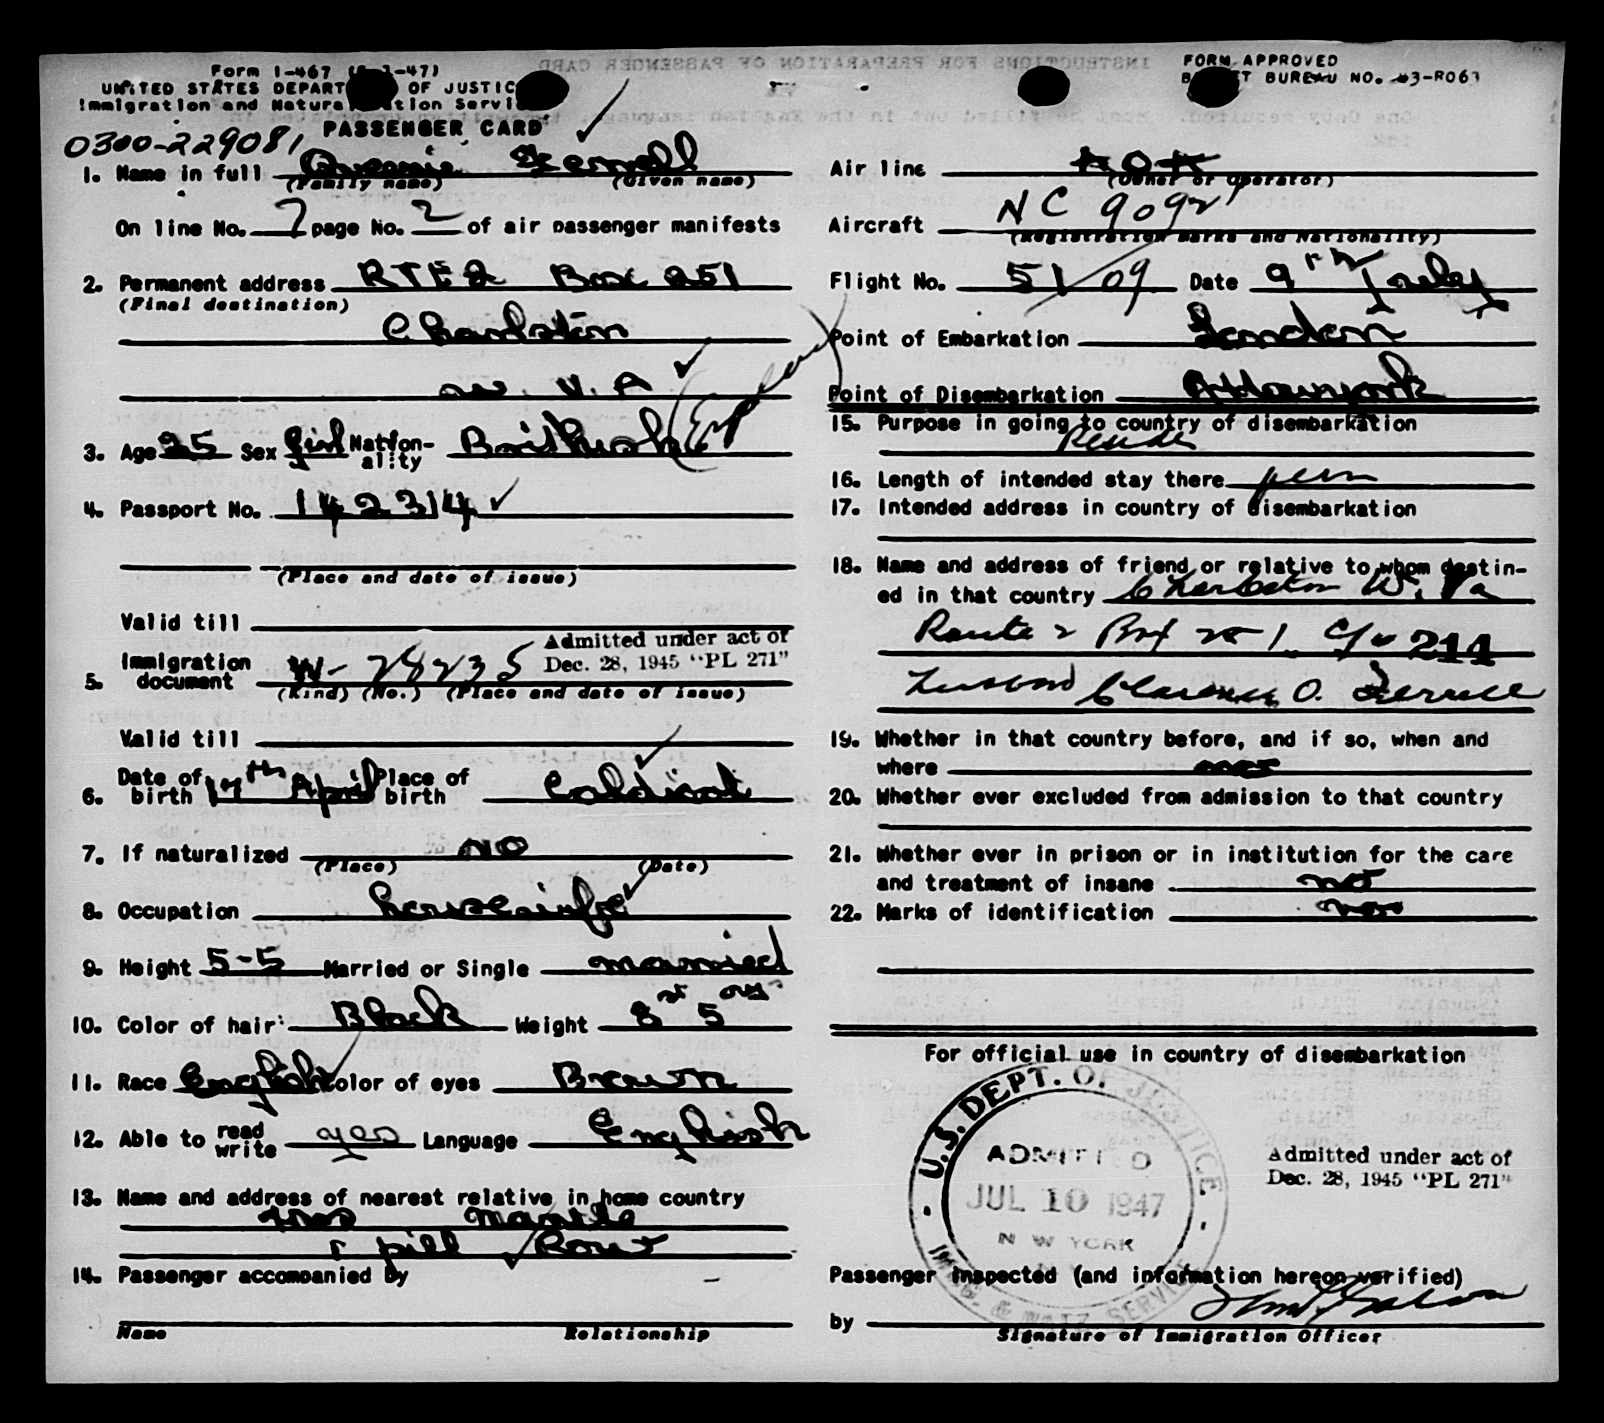 Form I-467 ( -47)
UNITED STATES DEPART OF JUSTIC
Immigration and Natura tion Servi
FORM APPROVED
B ET BUREAU NO. 43-R063
PASSENGER CARD
0300-229081
1. Name in full Ferrell
(Family name) (Given name)
On line No. 7 page No. 2 of air passenger manifests
2. Permanent address RTE 2 Box 251
(Final destination)
Charleston
W. V. A
3. Age 25 Sex girl Nation-ality British
4. Passport No. 142314
(Place and date of issue)
Valid till
Admitted under act of
Dec. 28, 1945 "PL 271"
5. Immigration document W- 28235
(Kind) (No.) (Place and date of issue)
Valid till
6. Date of birth 17th April Place of birth
7. If naturalized NO
(Place) (Date)
8. Occupation housewife
9. Height 5-5 Married or Single married
10. Color of hair Black Weight 8 st 5
11. Race English Color of eyes Brown
12. Able to read write yes Language English
13. Name and address of nearest relative in home country
14. Passenger accompanied by
Name Relationship
Air line AOA
(Owner or operator)
Aircraft NC 9092
(Registration marks and Nationality)
Flight No. 51/09 Date 9th July
Point of Embarkation London
Point of Disembarkation
15. Purpose in going to country of disembarkation
Reside
16. Length of intended stay there perm
17. Intended address in country of disembarkation
18. Name and address of friend or relative to whom destin-
ed in that country Charleston W. Va
Route 2 Box 251 c/o 214
Husband Clarence O. Ferrell
19. Whether in that country before, and if so, when and
where no
20. Whether ever excluded from admission to that country
21. Whether ever in prison or in institution for the care
and treatment of insane no
22. Marks of identification
For official use in country of disembarkation
U.S. DEPT. OF JUSTICE
ADMITTED
JUL 10 1947
N W YORK
IMMIG. & NATZ. SERVICE
Admitted under act of
Dec. 28, 1945 "PL 271"
Passenger inspected (and information hereon verified)
by
Signature of Immigration Officer